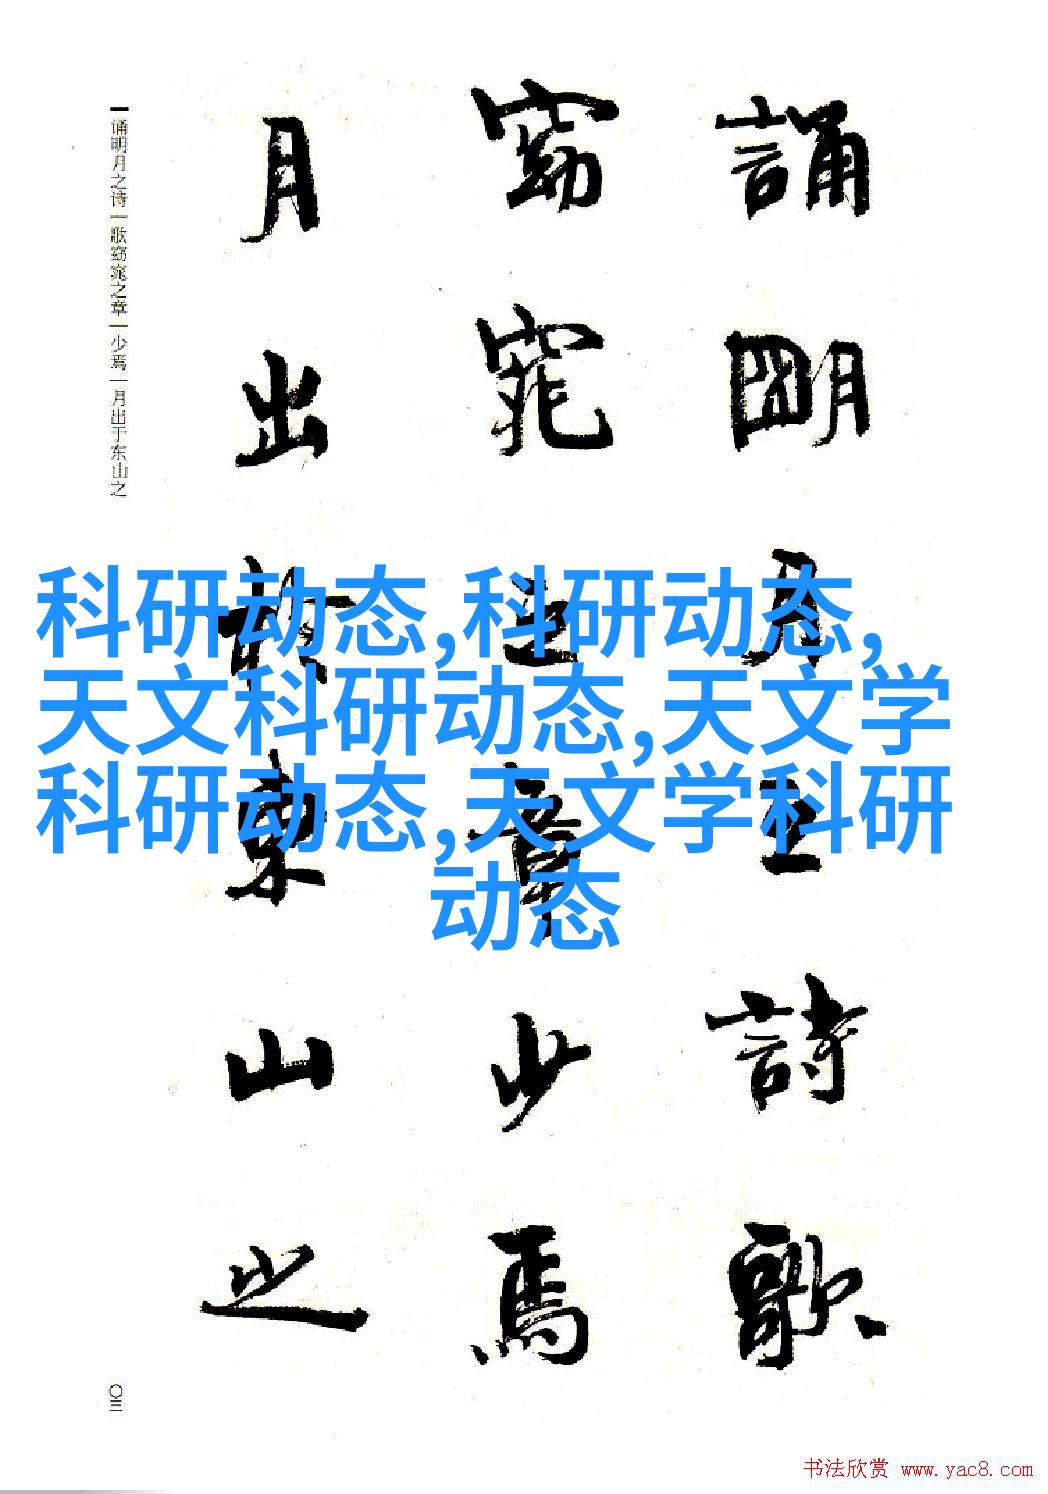 誦明月之詩歌
窈窕之章少焉
月出於東山之
诵明月之诗｜歌窈窕之章｜少焉｜月出于东山之
科研动态,科研动态,
天文科研动态,天文学
科研动态,天文学科研
动态
〇三
书法欣赏 www.yac8.com